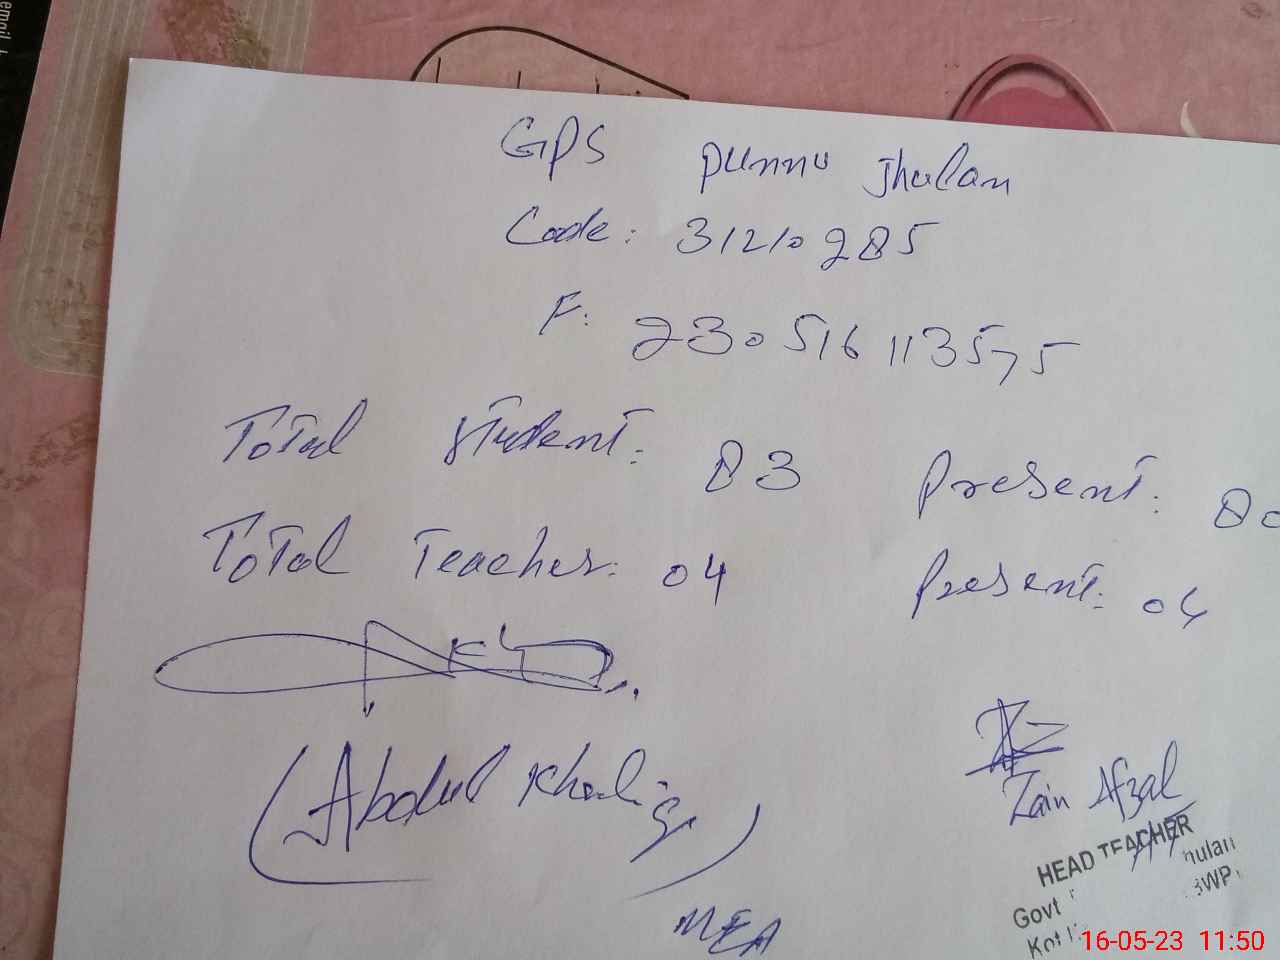 email
GPS punnu Jhulan
Code: 31210285
F: 230516113575
Total Student: 83 Present: 80
Total Teacher: 04 Present: 04
(Abdul Khaliq)
MEA
Zain Afzal
HT
HEAD TEACHER
Govt hulan
Kot BWP
16-05-23 11:50